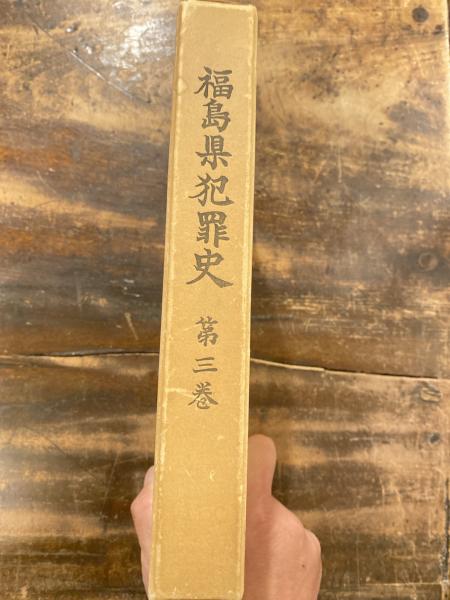 福島県犯罪史 第三巻